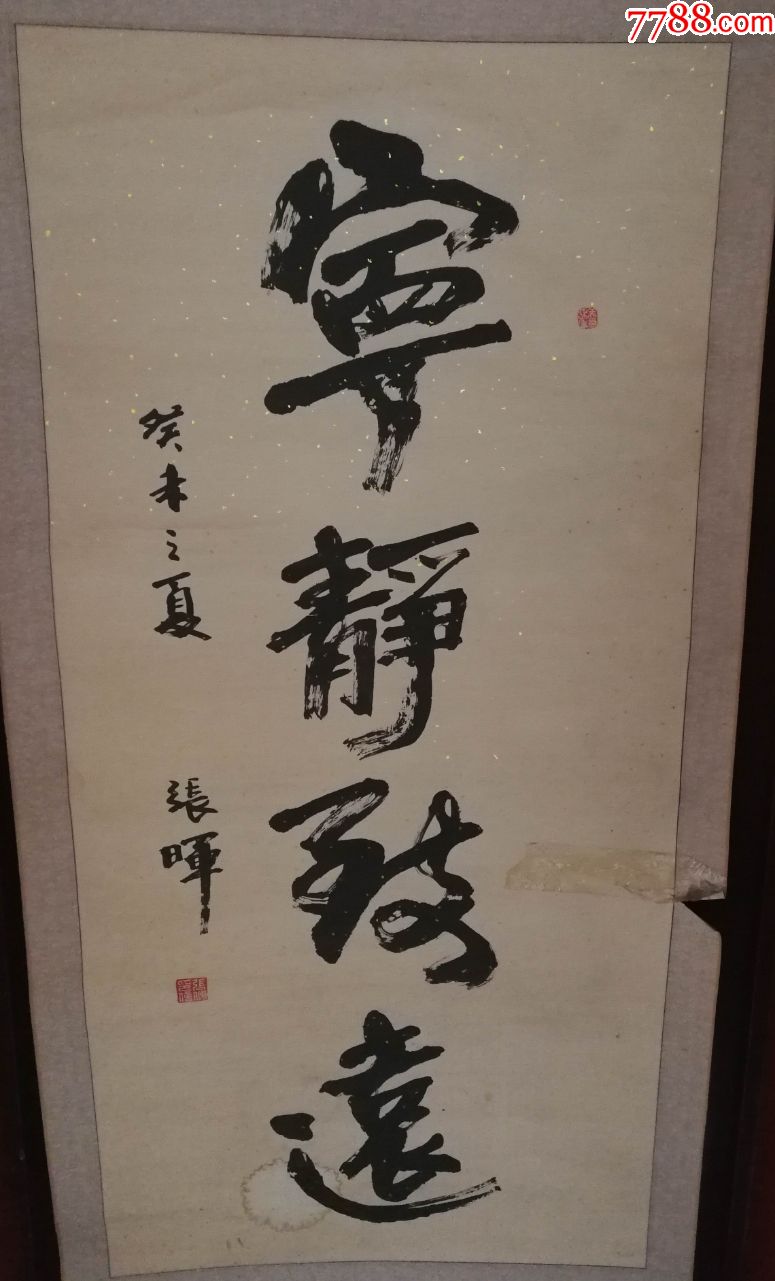 7788.com
寧靜致遠
癸未之夏
張暉